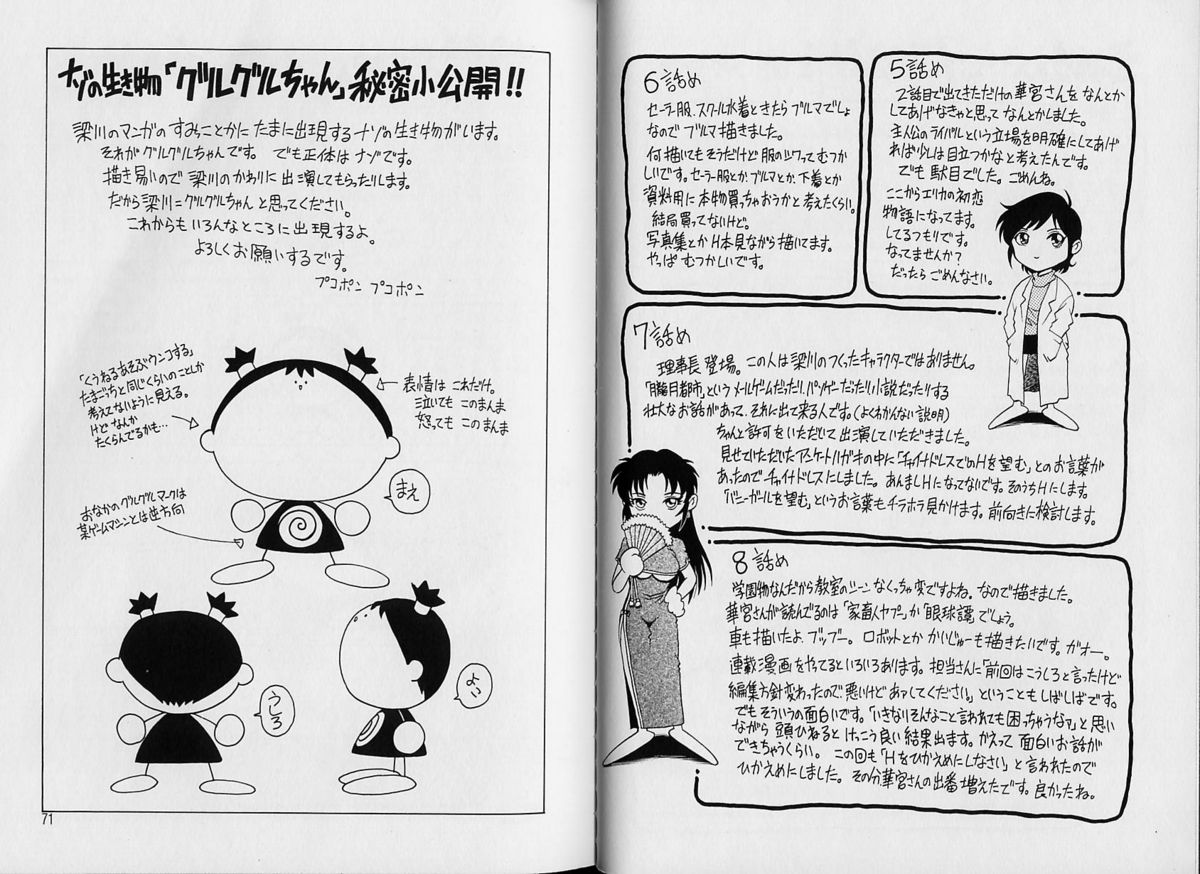 ナゾの生き物「グルグルちゃん」秘密小公開!!
梁川のマンガのすみっことかにたまに出現するナゾの生き物がいます。
それがグルグルちゃんです。 でも正体はナゾです。
描き易いので梁川のかわりに出演してもらったりします。
だから梁川=グルグルちゃんと思ってください。
これからもいろんなところに出現するよ。
よろしくお願いするです。
プコポン プコポン
「くうねるあそぶウンコする」
たまごっちと同じくらいのことしか
考えてないように見える。
けど なんか
たくらんでるかも…
表情は これだけ。
泣いても このまんま
怒っても このまんま
まえ
おなかのグルグルマークは
某ゲームマシンとは逆方向
うしろ
よこ
71
5話め
2話目で出てきただけの華宮さんをなんとか
してあげなきゃと思って なんとかしました。
主人公のライバルという立場を明確にしてあげ
れば少しは目立つかなと考えたんです。
でも駄目でした。ごめんね。
ここからエリカの初恋
物語になってます。
してるつもりです。
なってませんか?
だったらごめんなさい。
6話め
セーラー服、スクール水着ときたらブルマでしょ
なので ブルマ描きました。
何描いてもそうだけど服のシワってむつか
しいです。セーラー服とか、ブルマとか、下着とか
資料用に本物買っちゃおうかと考えたくらい。
結局買ってないけど。
写真集とかH本見ながら描いてます。
やっぱむつかしいです。
7話め
理事長登場。この人は梁川のつくったキャラクターではありません。
「朧月都市」というメールゲームだったり、バッヂーだったり小説だったりする
壮大なお話があって、それに出て来る人です。(よくわかんない説明)
ちゃんと許可をいただいて出演していただきました。
見せていただいたアンケートハガキの中に「チャイナドレスでのHを望む」とのお言葉が
あったのでチャイナドレスにしました。あんましHになってないです。そのうちHにします。
「バニーガールを望む」というお言葉もチラホラ見かけます。前向きに検討します。
8話め
学園物なんだから教室のシーンなくっちゃ変ですよね。なので描きました。
華宮さんが読んでるのは「家畜人ヤプー」か「眼球譚」でしょう。
車も描いたよ、ブッブー。ロボットとか かいじゅーも描きたいです。ガオー。
連載漫画をやってるといろいろあります。担当さんに「前回はこうしろと言ったけど
編集方針変わったので悪いけどあァしてください。」ということもしばしばです。
でもそういうの面白いです。「いきなりそんなこと言われても困っちゃうなァ」と思い
ながら 頭ひねると けっこう良い結果出ます。かえって面白いお話が
できちゃうくらい。 この回も「Hをひかえめにしなさい」と言われたので
ひかえめにしました。その分華宮さんの出番増えたです。良かったね。